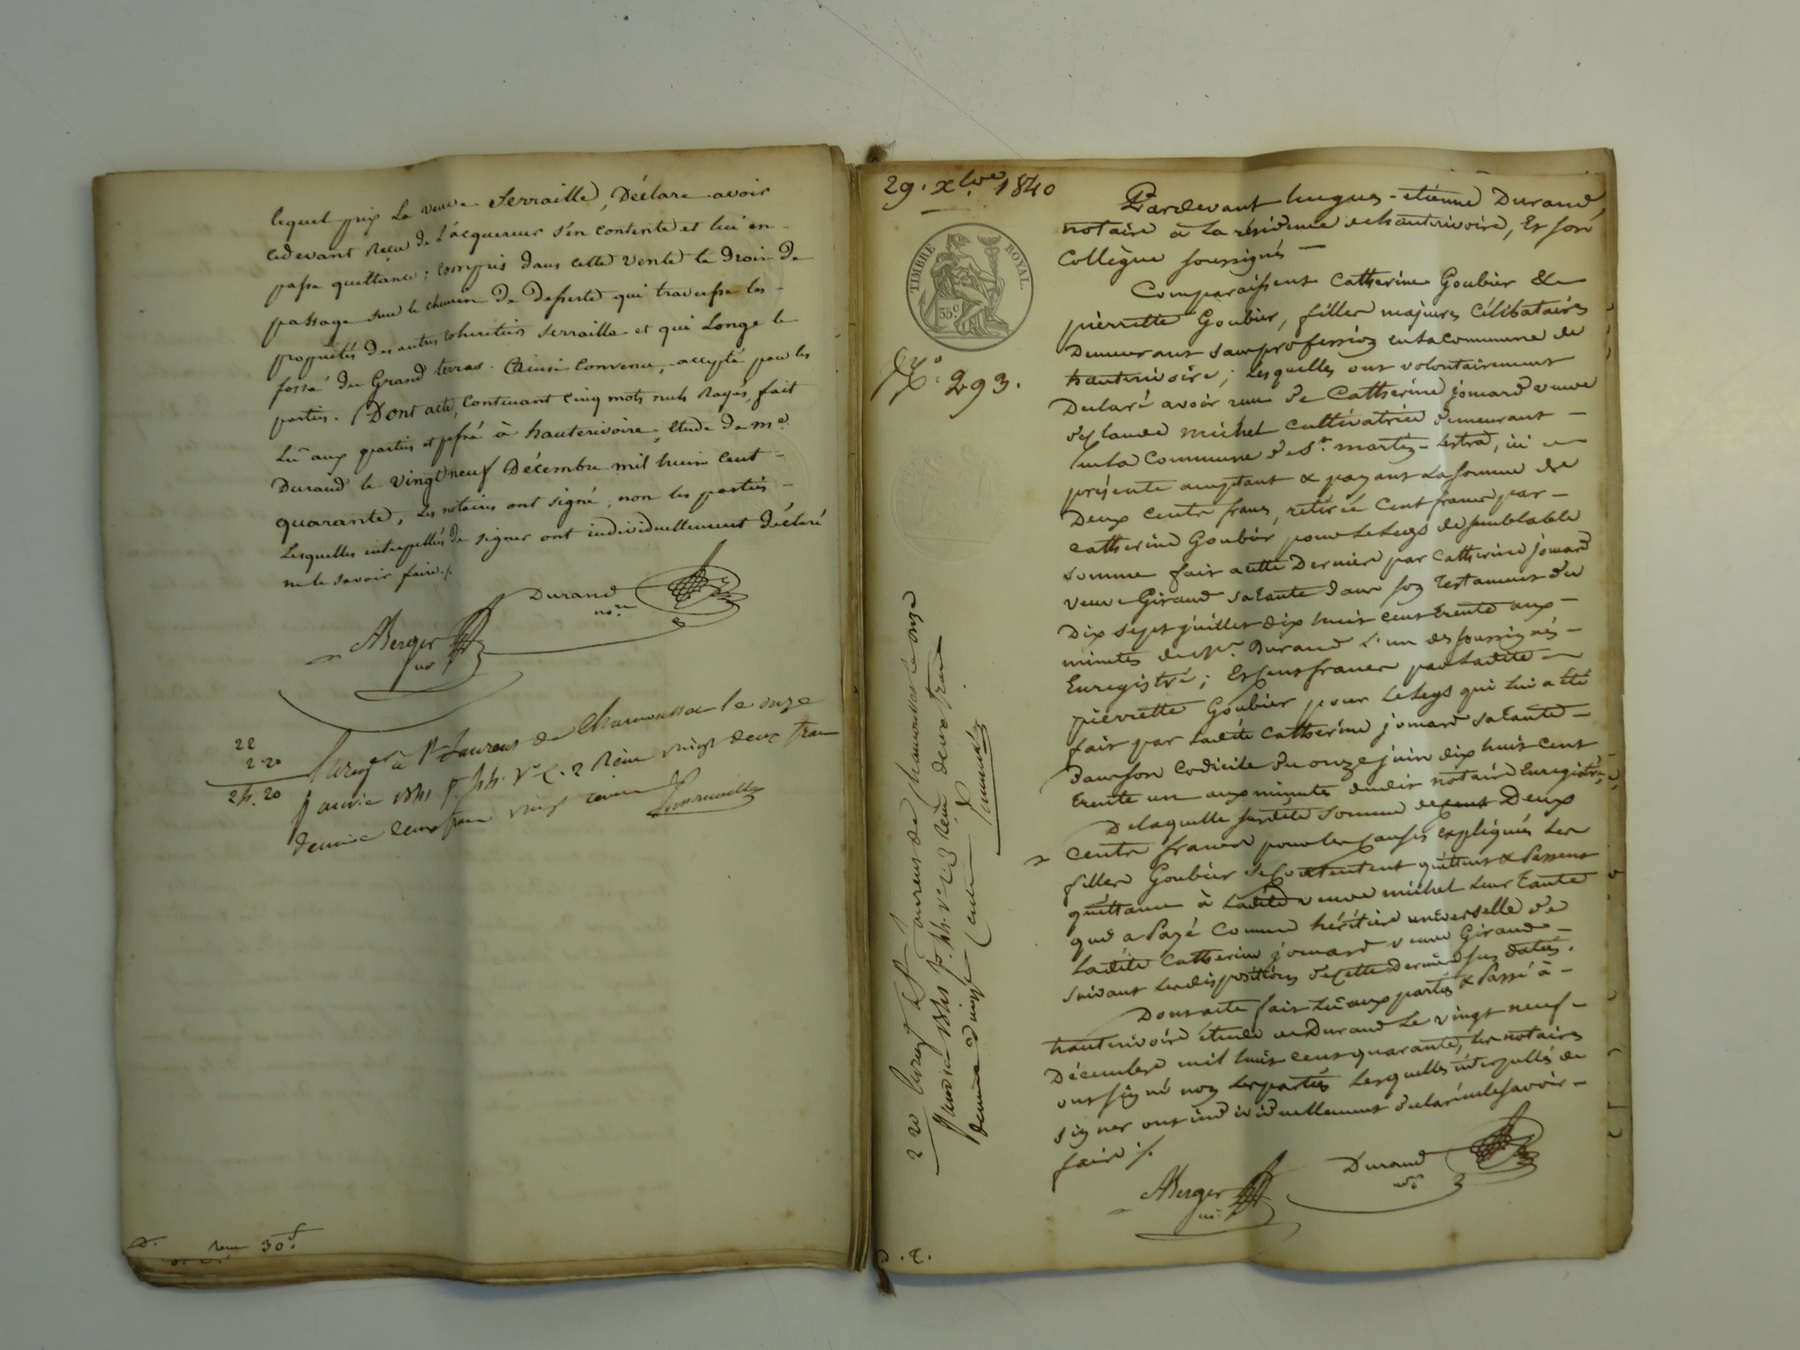 lequel prix La veuve Serraille, Déclare avoir
cedevant Reçu de L'acquereur s'en contente et lui en
passe quittance; compris dans cette vente le Droit de
passage sur le chemin de desserte qui traverse les
propriétés des autres coheritiers Serraille et qui Longe le
fossé du Grand terras. Ainsi convenu, accepté par les
parties. Dont acte, contenant cinq mots nuls Rayés, fait
Lu aux parties et passé à hauterivoire, Etude de me
Durand le vingt neuf Décembre mil huit cent
quarante, Les notaires ont signé, non les parties
Lesquelles interpellées de signer ont individuellement déclaré
ne le savoir faire ./.
Durand
nore
ABerger
22
2 20
24. 20
St Laurent de Chamousset le onze
janvier 1841 fo vo c. 2 Reçu vingt deux francs
decime deux francs vingt centimes
Reçu 30f.
29. Xbre 1840
TIMBRE ROYAL
35c
No. 293.
Pardevant hugues-étienne Durand,
notaire à La résidence de hauterivoire, Et son
Collègue soussignés
Comparaissent Catherine Goubier &
pierrette Goubier, filles majeures célibataires
Demeurant sans profession en la Commune de
hauterivoire; Lesquelles ont volontairement
Declaré avoir reçu de Catherine jomard veuve
de Claude michel cultivatrice demeurant
en la Commune de St. martin-Lestra, ici
présente acceptant & payant La somme de
Deux cents francs, retirée Cent francs par
catherine Goubier pour Le Legs de semblable
somme fait a cette Dernière par Catherine jomard
veuve Giraud sa tante dans son Testament du
Dix sept juillet dix huit cent trente aux
minutes du Me. Durand L'un des soussignés
Enregistré; Et Cent francs par Ladite
pierrette Goubier pour Le Legs qui lui a été
fait par Ladite Catherine jomard sa tante
dans son Codicile du onze juin dix huit cent
trente un aux minutes dudit notaire Enregistré,
De laquelle susdite somme de Deux
cents francs pour les Causes expliquées Les
filles Goubier se Contentent quittent & Passent
quittance à Ladite veuve michel Leur tante
qui a Payé Comme héritière universelle de
Ladite Catherine jomard veuve Giraud
suivant Les dispositions de cette dernière sus datées.
Dont acte fait Lu aux parties & Passé à
hauterivoire étude de Durand Le vingt neuf
Décembre mil huit cent quarante, Les notaires
ont signé non Les parties Lesquelles interpellées de
signer ont individuellement declaré ne le savoir
faire ./.
Durand
nre
ABerger
2 20
St Laurent de Chamousset le onze
janvier 1841 fo vo c 3 Reçu deux francs
decime vingt centimes